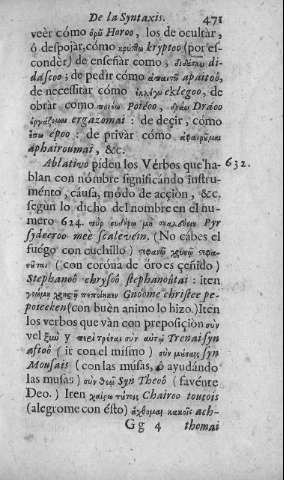 De la Syntaxis. 471
veèr cómo ὁρῶ Horoo, los de ocultar,
ò despojar, cómo κρύπτω kryptoo (por es-
conder) de enseñar como; διδάσκω di-
dascoo; de pedir cómo ἀπαιτῶ apaitoò,
de necessitar cómo eklegoo, de
obrar cómo ποιέω poieoo, δράω Draco
ἐργάζομαι ergazomai: de deçir, cómo
ἔπω epoo: de privàr cómo ἀφαιροῦμαι
aphairoumai, &c.
Ablativo piden los Vèrbos que ha- 632.
blan con nómbre significándo instru-
mento, càusa, módo de accion, &c.
segùn lo dicho del nombre en el nu-
mero 624. πῦρ μὴ σκαλεύειν Pyr
mee scalevein. (No cabes el
fuégo con cuchillo) χρυσῷ
( con coróna de óro es çeñido)
Stephanoò chrysoò stephanoûtai: iten
γνώμῃ χρηστῇ πεποίηκεν Gnoome christee pe-
poieeken (con buèn animo lo hizo.) Iten
los verbos que vàn con preposiciòn σὺν
vel ξὺν y σὺν αὐτῷ syn
aftoò ( ir con el mísmo ) σὺν μούσαις syn
Mousais ( con las músas, ò ayudándo
las musas ) σὺν θεῷ Syn Theoò ( favénte
Deo. ) Iten χαίρω τούτοις Chairoo toutois
(alegrome con ésto) ἄχθομαι κακοῖς ach-
G g 4 thomai